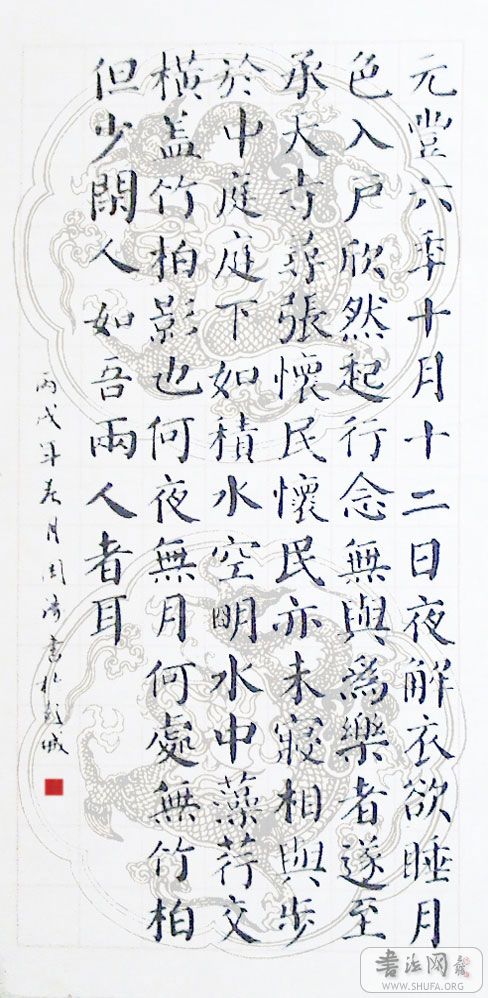 元豐六年十月十二日夜解衣欲睡月
色入户欣然起行念無與爲樂者遂至
承天寺尋張懷民懷民亦未寢相與步
於中庭庭下如積水空明水中藻荇交
橫盖竹柏影也何夜無月何處無竹柏
但少閑人如吾兩人者耳
丙戌年春月周濤書於彭城
書法网
WWW.SHUFA.ORG